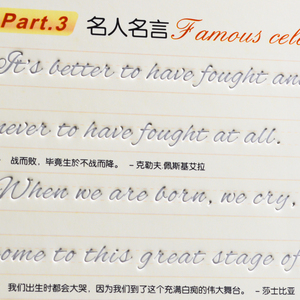 Part.3 名人名言 Famous cel
It's better to have fought an
never to have fought at all.
战而败，毕竟生於不战而降。 - 克勒夫.佩斯基艾拉
When we are born, we cry.
ome to this great stage of
我们出生时都会大哭，因为我们到了这个充满白痴的伟大舞台。 - 莎士比亚